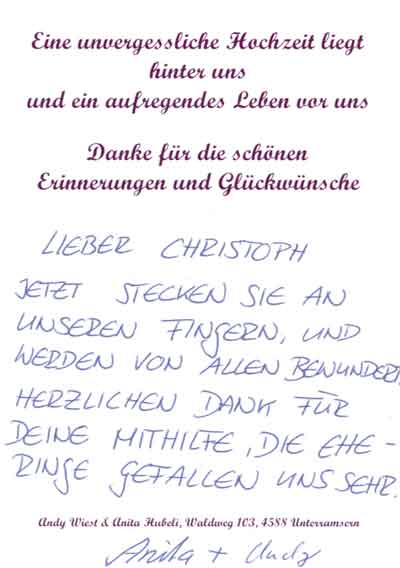 Eine unvergessliche Hochzeit liegt
hinter uns
und ein aufregendes Leben vor uns
Danke für die schönen
Erinnerungen und Glückwünsche
LIEBER CHRISTOPH
JETZT STECKEN SIE AN
UNSEREN FINGERN, UND
WERDEN VON ALLEN BEWUNDERT.
HERZLICHEN DANK FÜR
DEINE MITHILFE, DIE EHE-
RINGE GEFALLEN UNS SEHR.
Andy Wiest & Anita Hubeli, Waldweg 103, 4588 Unterramsern
Anita + Andy